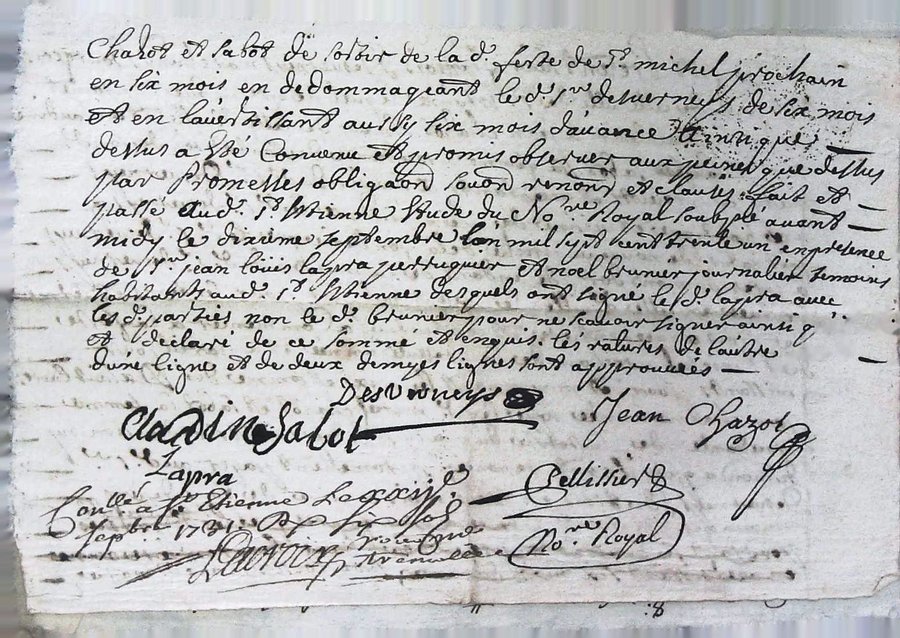 Chazot et Sabot de sortir de la d. ferte de St michel prochain
en six mois en dedommageant le d. Sr desverneys de six mois
et en lavertissant aussy six mois davance Ainsi que
dessus a Eté Convenu et promis observer aux peines que dessus
par Promesses obligaons soubons renonons et clauses. fait et
passé aud. St Etienne Etude du Nore Royal soubsé avant
midy le dixieme septembre lan mil sept cent trente un en presence
de Sr jean loüis lapra perruquier et noel brunier journalier temoins
habitants aud. St Etienne desquels ont signé le d. lapra avec
les d. parties non le d. brunier pour ne scavoir signer ainsi q
et declaré de ce sommé et enquis. les ratures de lautre
dune ligne et de deux demyes lignes sont approuvées
Desverneys
Claudine Sabot Jean Chazot
Lapra
Pellissier
Conllé a St Etienne Le xxije
Septbre 1731. Rx six sols
Nore Royal
Lacroix